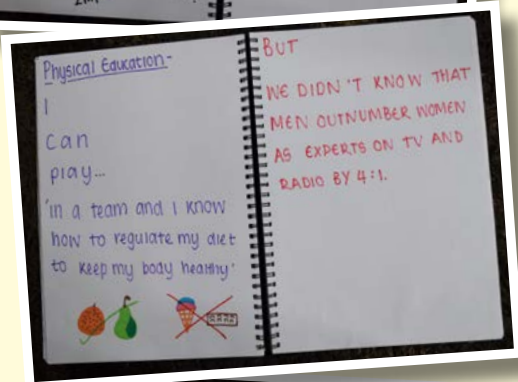 Physical Education-
I
can
play...
'in a team and I know
how to regulate my diet
to keep my body healthy'
BUT
WE DIDN'T KNOW THAT
MEN OUTNUMBER WOMEN
AS EXPERTS ON TV AND
RADIO BY 4:1.